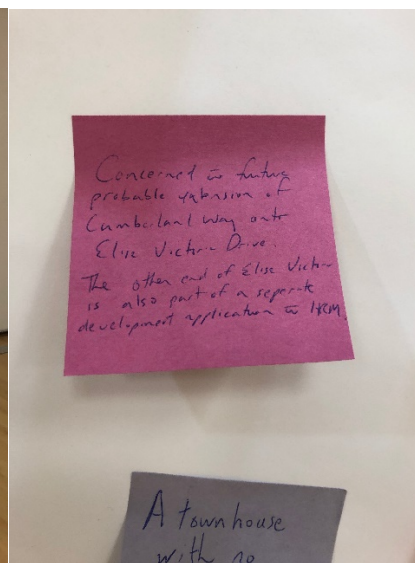 Concerned w future
probable extension of
Cumberland Way onto
Elise Victoria Drive.
The other end of Elise Victoria
is also part of a separate
development application w HRM.
A townhouse
with no